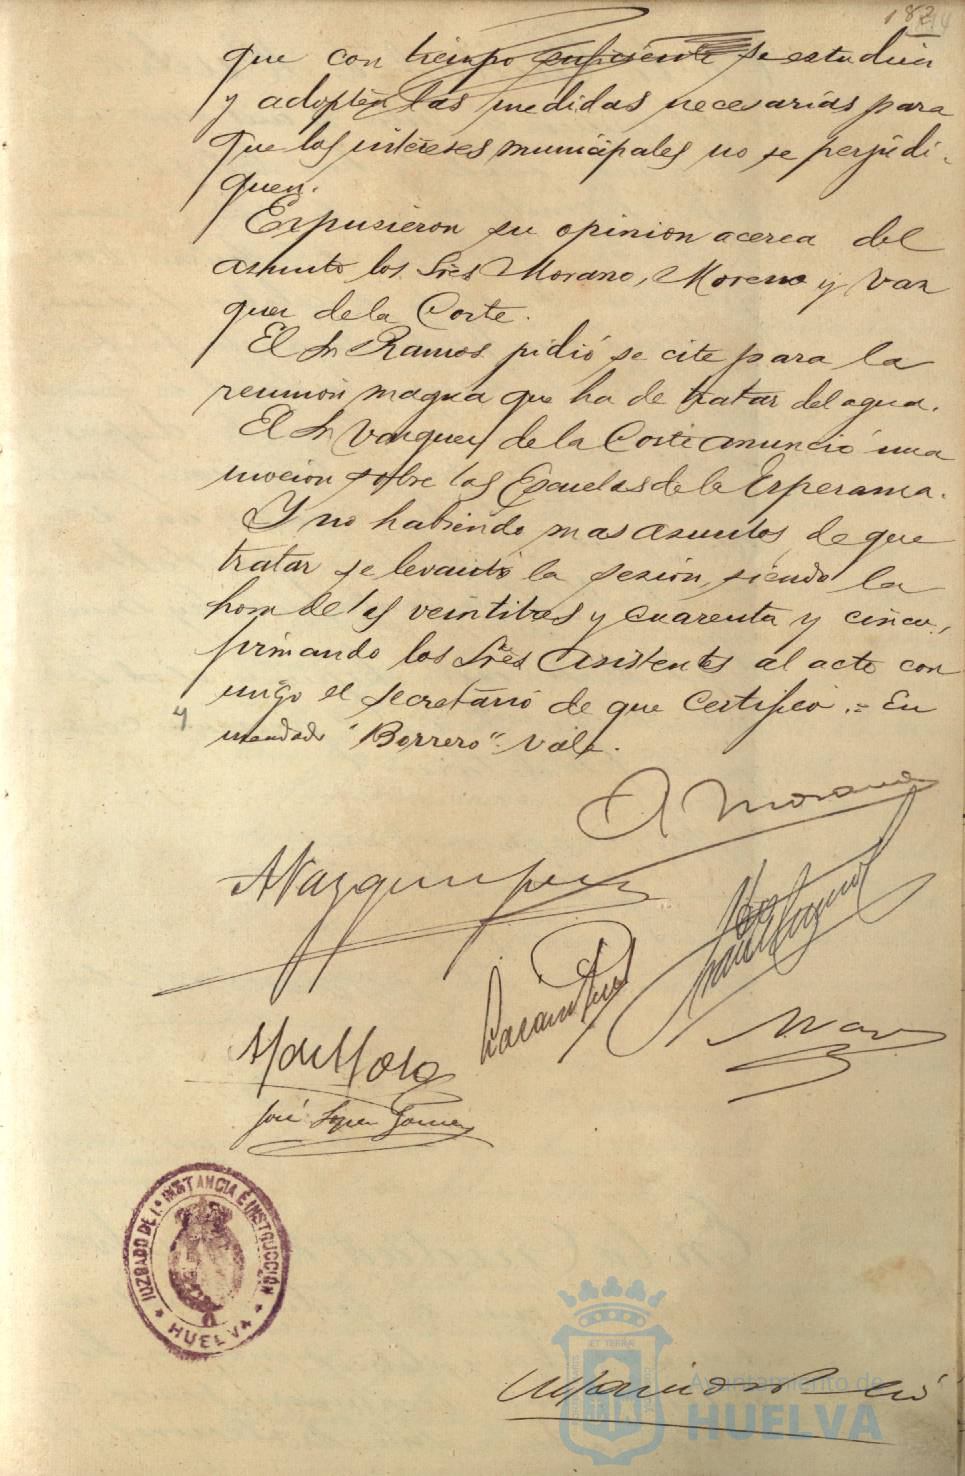 182
que con tiempo suficiente se estudien
y adopten las medidas necesarias para
que los intereses municipales no se perjudi-
quen.
Expusieron su opinion acerca del
asunto los Sres Morano, Moreno y Vaz
quez de la Corte.
El Sr Ramos pidió se cite para la
reunión magna que ha de tratar del agua.
El Sr Vazquez de la Corte anunció una
mocion sobre las Escuelas de la Esperanza.
Y no habiendo mas asuntos de que
tratar se levantó la sesión, siendo la
hora de las veintitres y cuarenta y cinco,
firmando los Sres asistentes al acto con
migo el secretario de que certifico.= En
mendado "Borrero". Vale.
A Morano
A Vazquez
José Lopez Gomez
JUZGADO DE 1ª INSTANCIA E INSTRUCCIÓN
HUELVA
Ayuntamiento de
HUELVA